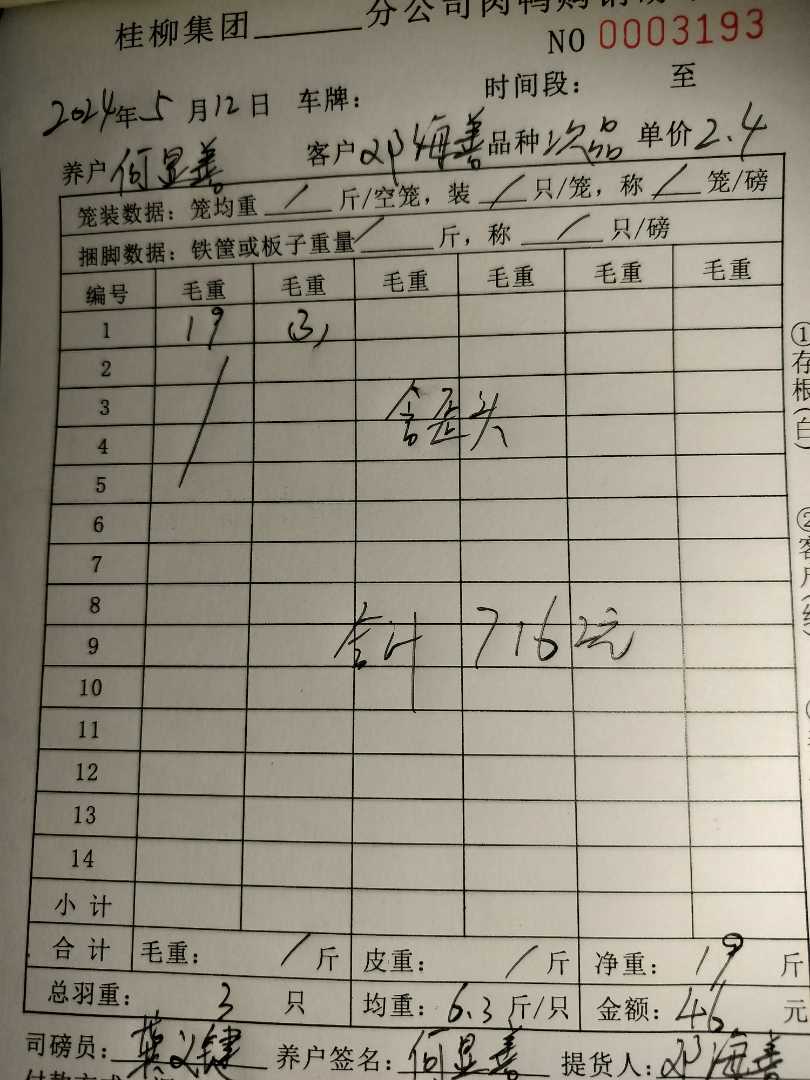 桂柳集团______分公司肉鸭购销
NO 0003193
2024年5月12日 车牌： 时间段： 至
养户 何显善 客户 邓海善 品种 次品 单价 2.4
笼装数据：笼均重 / 斤/空笼，装 / 只/笼，称 / 笼/磅
捆脚数据：铁筐或板子重量 / 斤，称 / 只/磅
编号 毛重 毛重 毛重 毛重 毛重 毛重
1 19 (3)
2
3 含歪头
4
5
6
7
8
9 合计 716元
10
11
12
13
14
小计
合计 毛重： / 斤 皮重： / 斤 净重： 19 斤
总羽重： 3 只 均重： 6.3 斤/只 金额： 46 元
司磅员： 养户签名：何显善 提货人：邓海善
①存根(白)
②客户